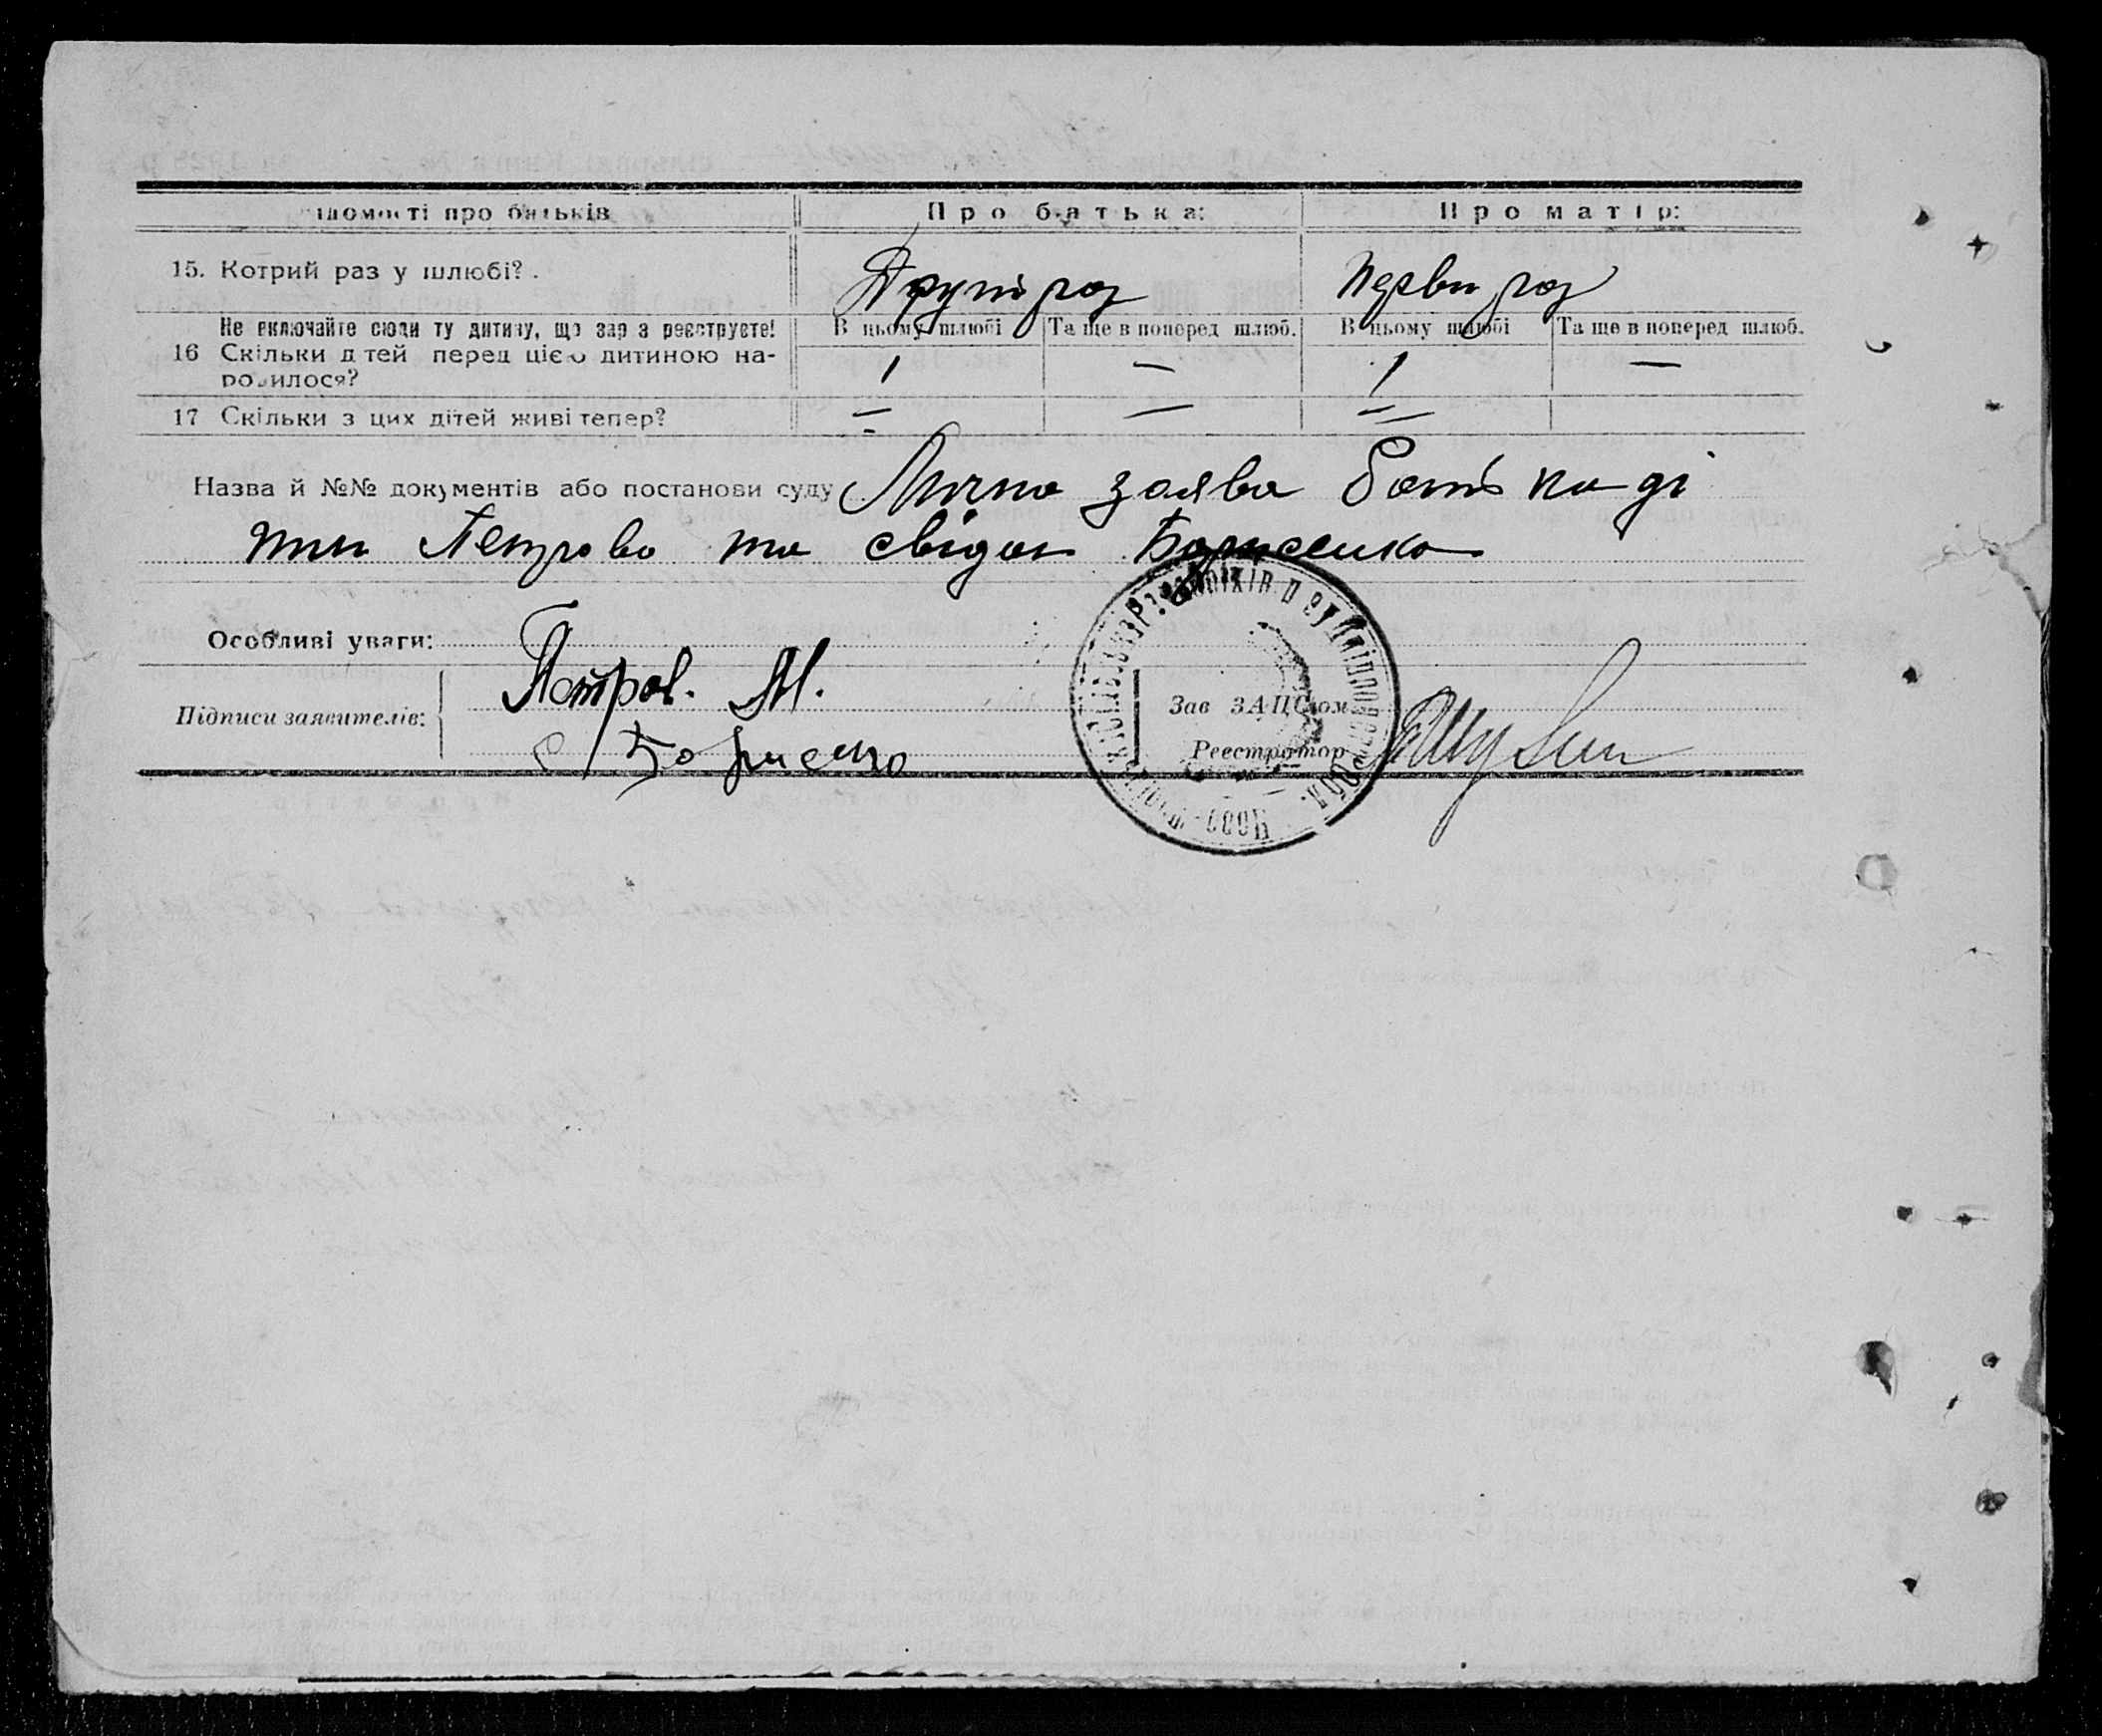 ідомості про батьків Про батька: Про матір:
15. Котрий раз у шлюбі? Другий раз Первий раз
Не включайте сюди ту дитину, що зараз реєструєте! В цьому шлюбі Та ще в поперед шлюб. В цьому шлюбі Та ще в поперед шлюб.
16 Скільки дітей перед цією дитиною на- 1 — 1 —
родилося?
17 Скільки з цих дітей живі тепер? — — —
Назва й №№ документів або постанови суду Лична заява батька ді
тини Петрова та свідок Борисенко
Особливі уваги:
Підписи заявителів: Петров. М.
Зав ЗАЦСом
Борисенко
Реєстратор